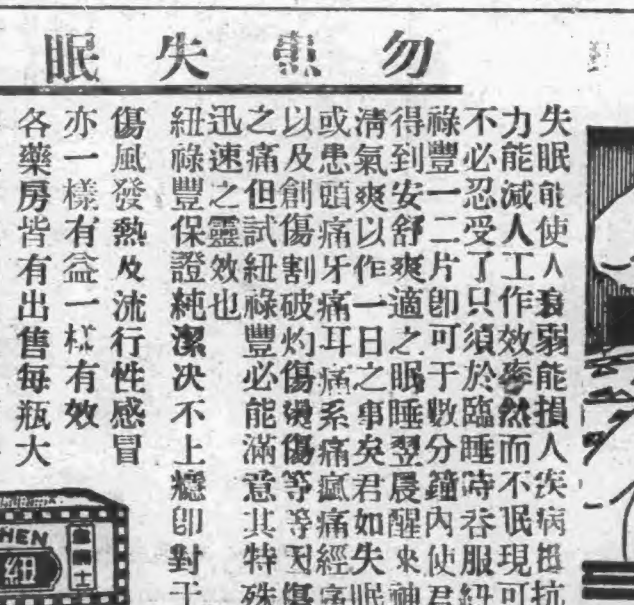 勿患失眠
失眠能使人衰弱能損人疾病抵抗
力能減人工作效率然而不眠現可
不必忍受了只須於臨睡時吞服紐
祿豐一二片卽可于數分鐘內使君
得到安舒爽適之眠睡翌晨醒來神
淸氣爽以作一日之事矣君如失眠
或患頭痛牙痛耳痛系痛瘋痛經痛
以及創傷割破灼傷燙傷等等因傷
之痛但試紐祿豐必能滿意其特殊
迅速之靈效也
紐祿豐保證純潔決不上癮卽對于
傷風發熱及流行性感冒
亦一樣有益一樣有效
各藥房皆有出售每瓶大
HEN
紐